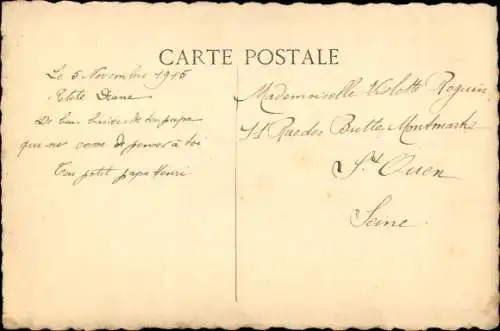 CARTE POSTALE
Le 5 Novembre 1915
Petite Diane
De bons baisers de ton papa
qui ne cesse de penser à toi
Ton petit papa Henri
Mademoiselle Violette Roguin
11 Rue des Buttes Montmartre
St Ouen
Seine.